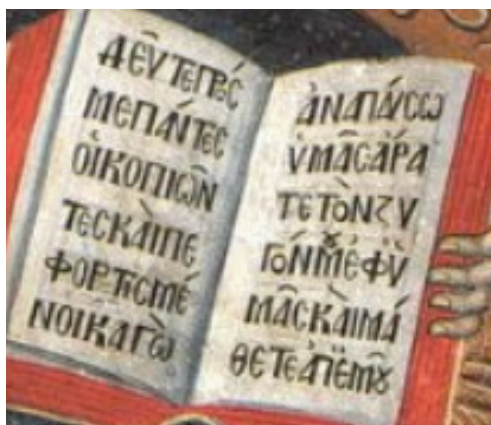 ΔΕΥ͂ΤΕ ΠΡΌC
ΜΕ ΠΆΝΤΕC
ΟΙ ΚΟΠΙΩ͂Ν
ΤΕC ΚΑῚ ΠΕ
ΦΟΡΤΙCΜΈ
ΝΟΙ ΚΑΓῺ
ἈΝΑΠΑΎCΩ
ὙΜΑ͂C ἌΡΑ
ΤΕ ΤῸΝ ΖΥ
ΓΌΝ ΜȢ ἘΦ' Ὑ
ΜΑ͂C ΚΑῚ ΜΆ
ΘΕΤΕ ἈΠ' ἘΜΟΥ͂